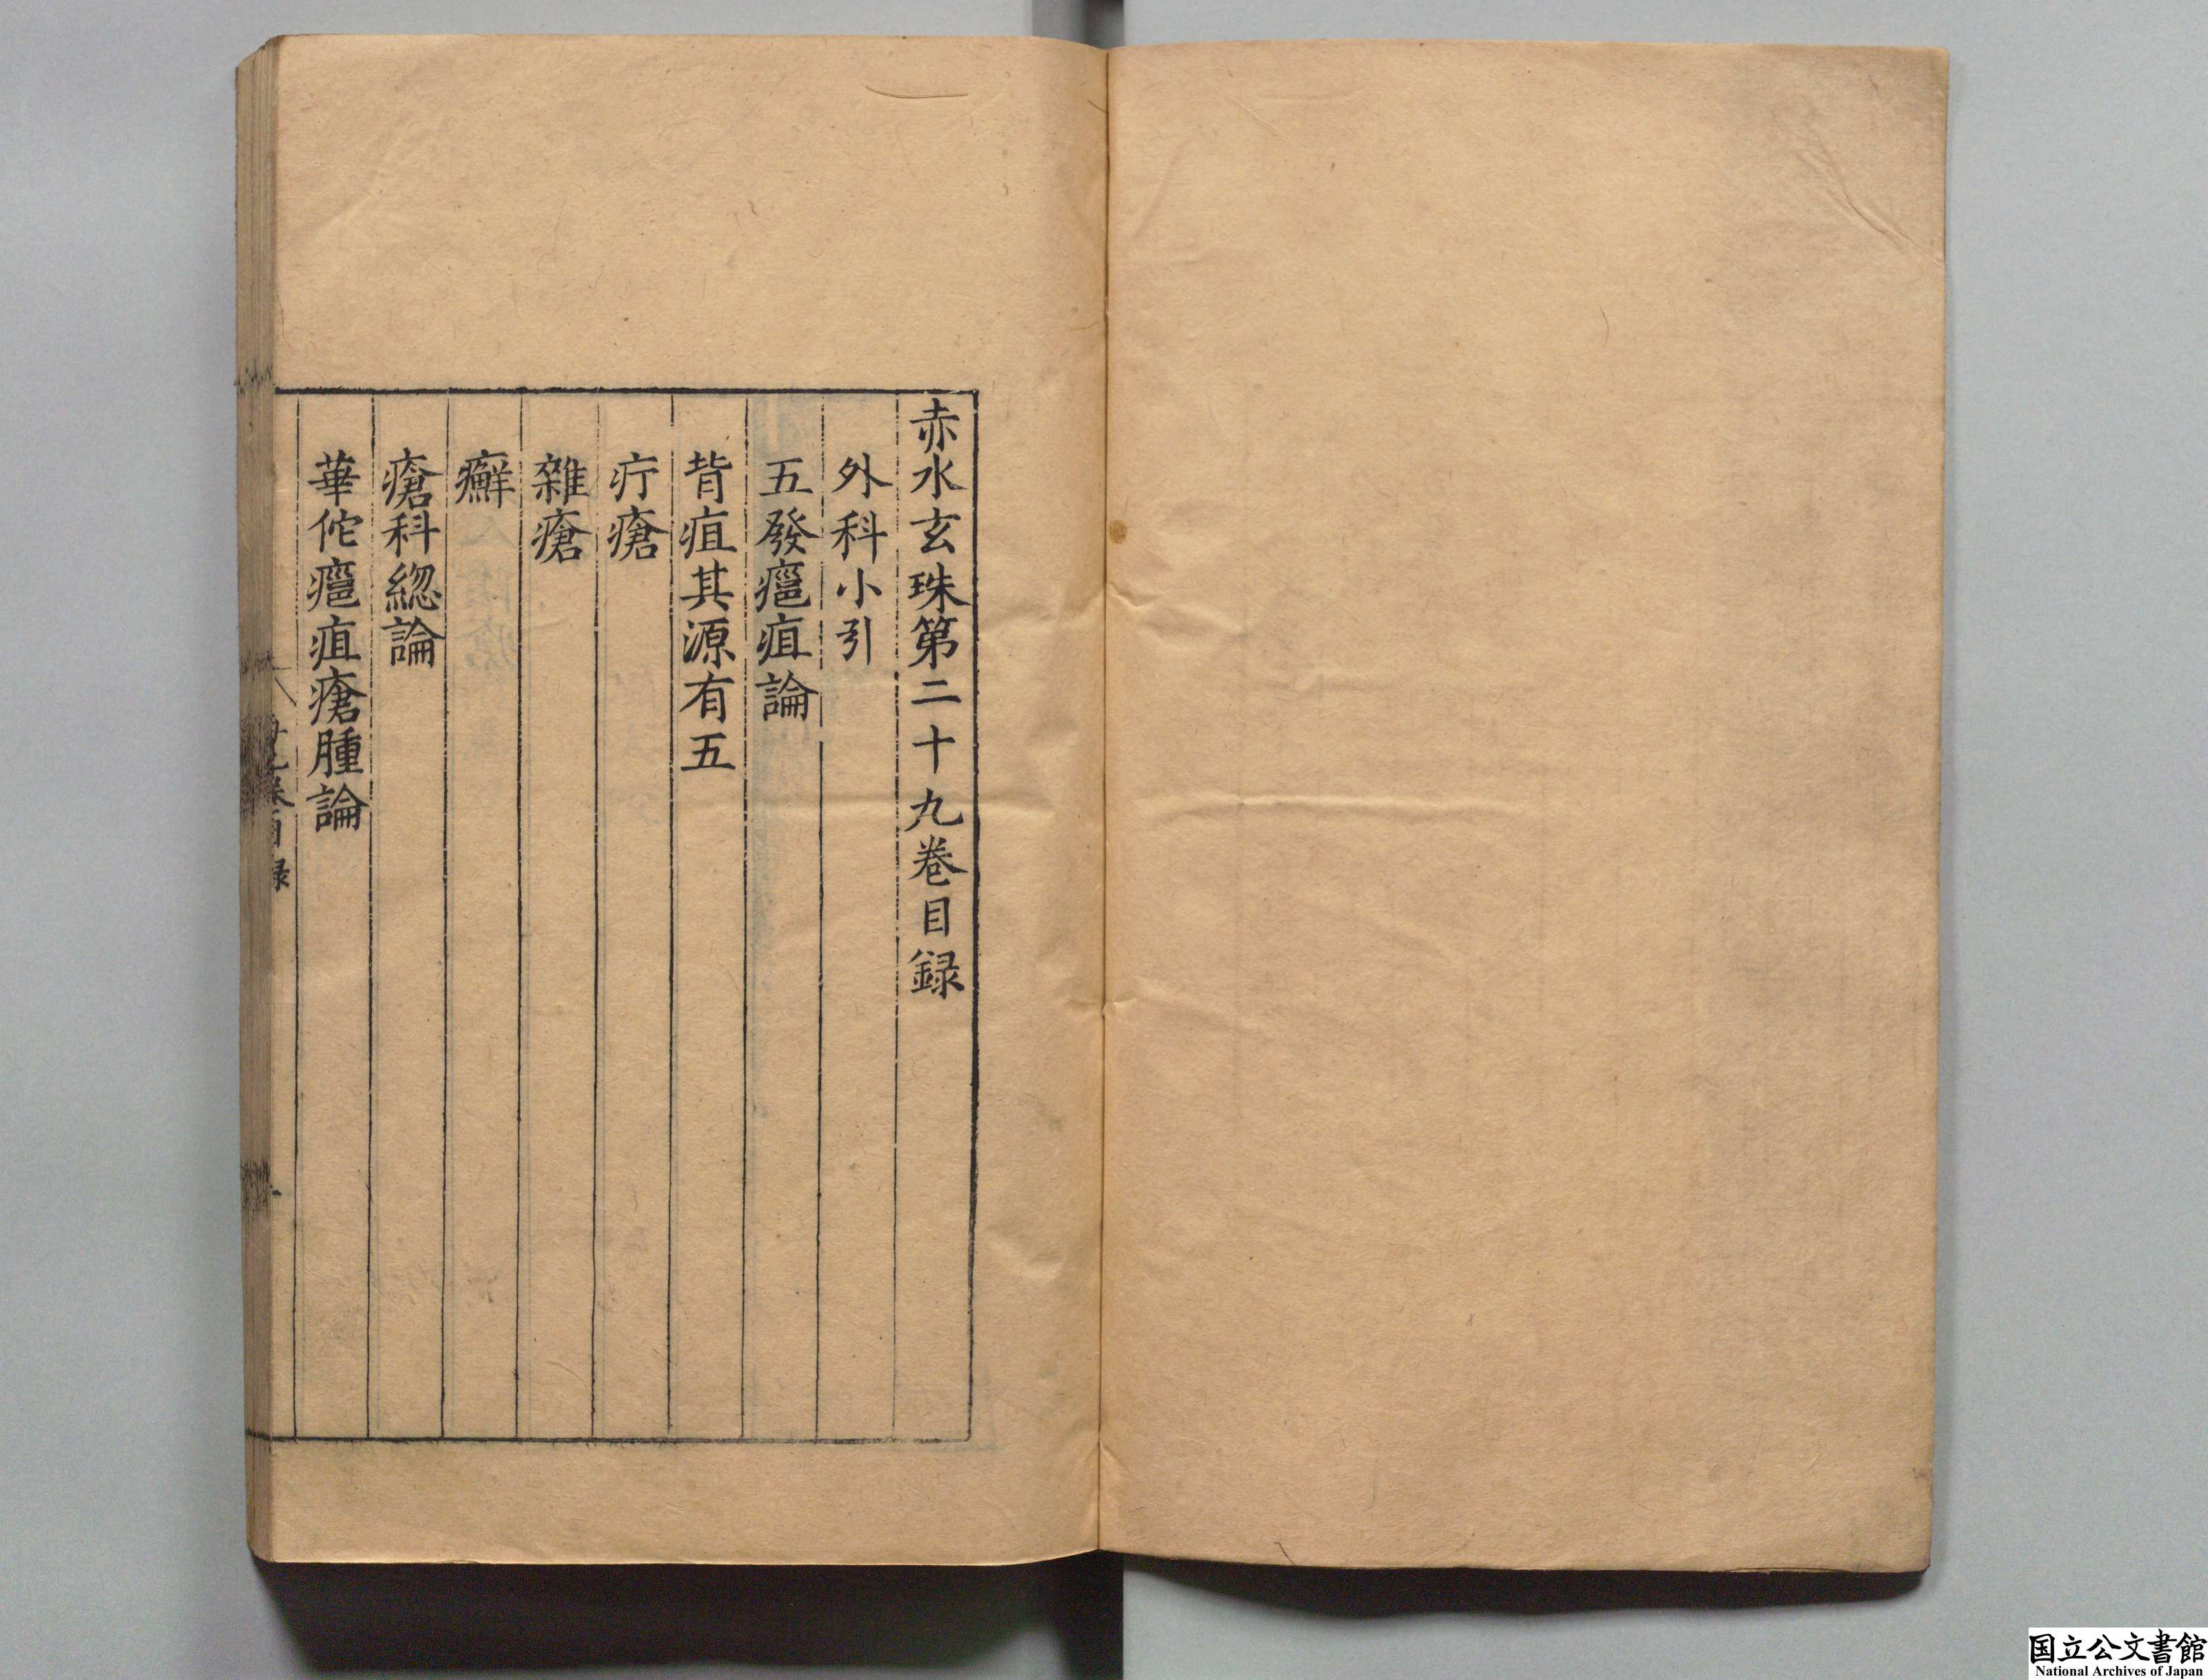 赤水玄珠第二十九卷目録
外科小引
五發癰疽論
背疽其源有五
疔瘡
雜瘡
癬
瘡科總論
華佗癰疽瘡腫論
国立公文書館
National Archives of Japan